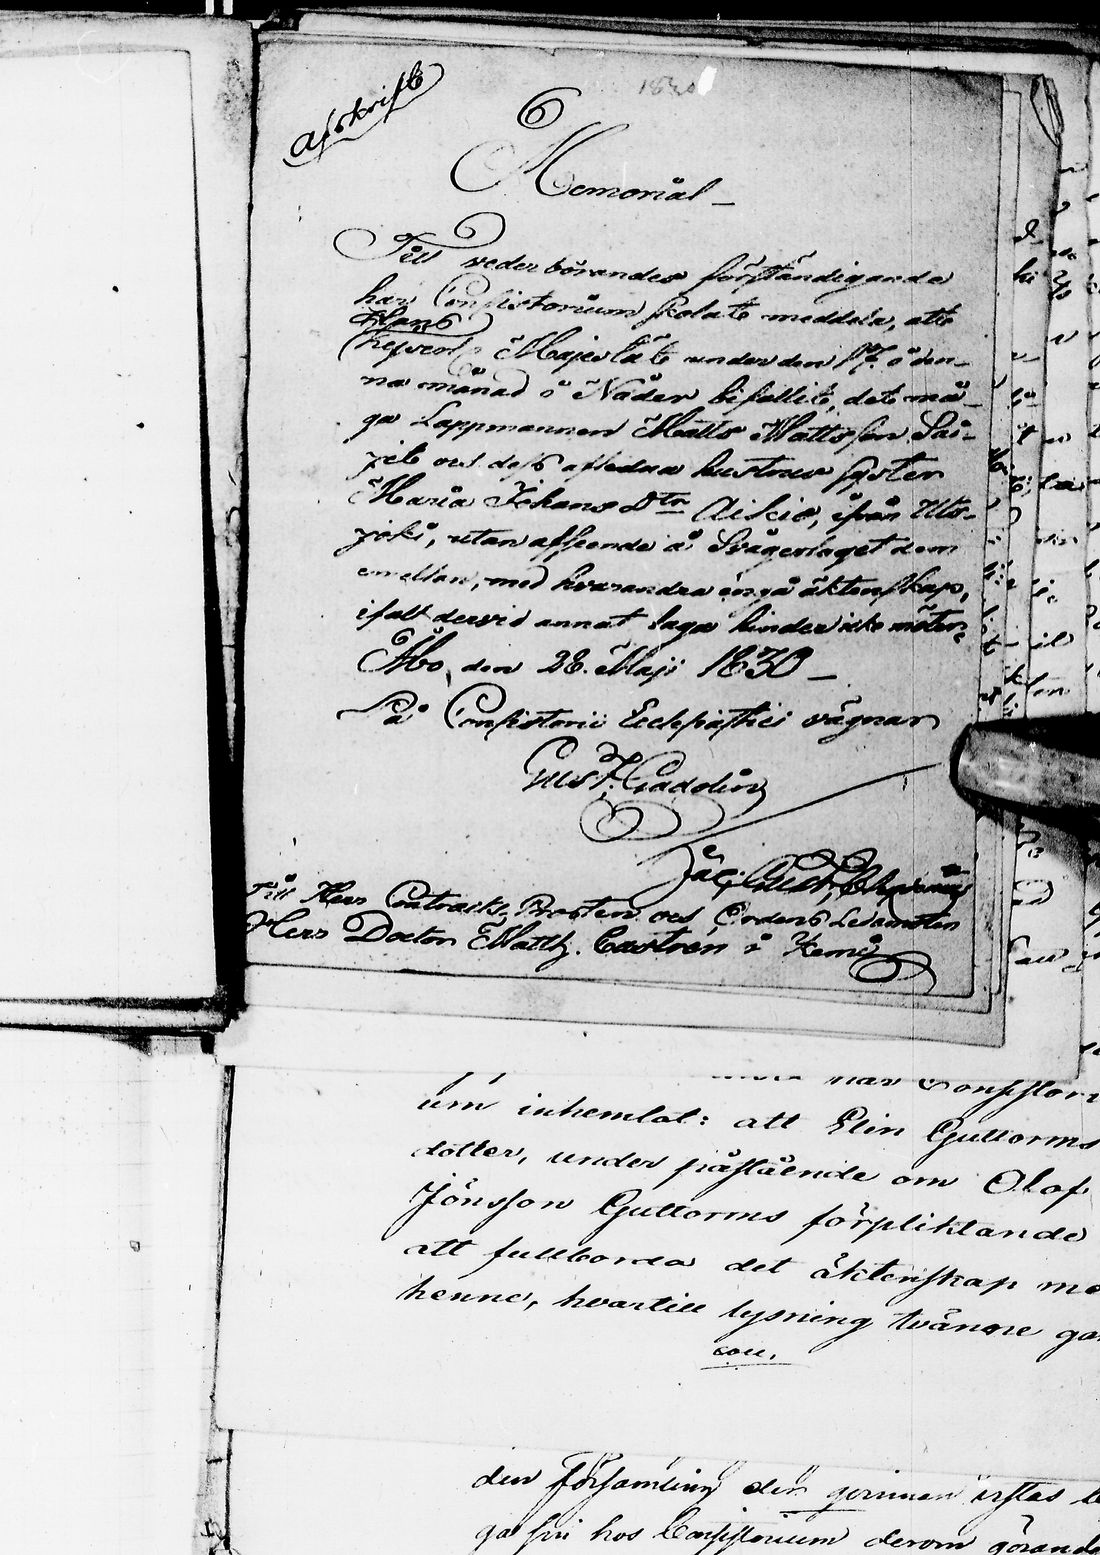 Afskrift
1830
Memorial
Till vederbörandes förständigande
har Consistorium skolat meddela, att
Hans
Kejserl. Majestät under den 17 i den-
na månad i Nåder bifallit, det må-
ga Lappmannen Matts Mattsson Sai-
jet och dess aflidna hustrus syster
Maria Johans Dtr Aikio, ifrån Uts-
joki, utan afseende å Svågerlaget dem
emellan, med hvarandra ingå äktenskap,
ifall dervid annat laga hinder icke möter.
Åbo, den 28. Maji 1830
På Consistorii Ecclesiastici vägnar
Gust. Gadolin
Jac. Gust.
Till Herr Contracts Prosten och Ordens Ledamoten
Herr Doctor Matth. Castrén i Kemi
har Consistori
um inhemtat: att Elin Guttorms
dotter, under påstående om Olof
Jönsson Guttorms förpliktande
att fullborda det äktenskap me
henne, hvartill lysning tvänne go
den församling der
ga sin hos Consistorium derom görande